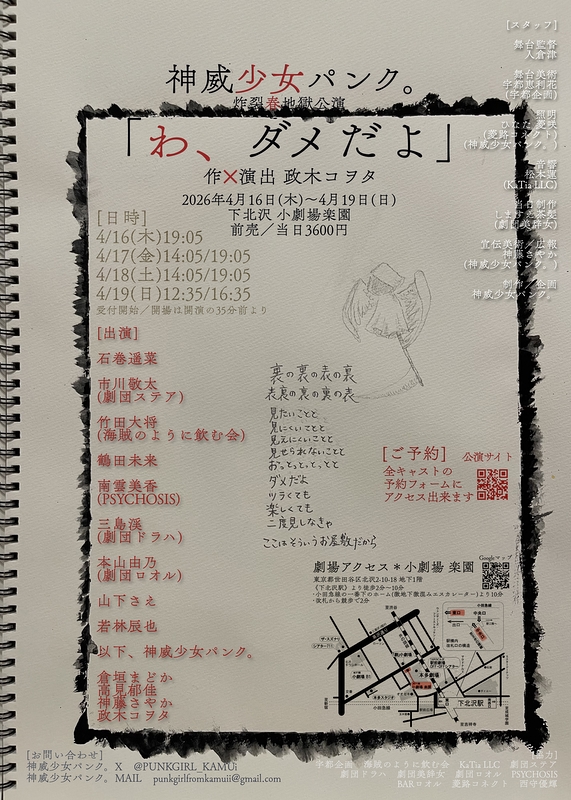 神威少女パンク。
炸裂春地獄公演
「わ、ダメだよ」
作×演出 政木コヲタ
2026年4月16日(木)〜4月19日(日)
下北沢 小劇場楽園
前売／当日3600円
[日時]
4/16(木)19:05
4/17(金)14:05/19:05
4/18(土)14:05/19:05
4/19(日)12:35/16:35
受付開始／開場は開演の35分前より
[出演]
石巻遥菜
市川敬太
(劇団ステア)
竹田大将
(海賊のように飲む会)
鶴田未来
南雲美香
(PSYCHOSIS)
三島渓
(劇団ドラハ)
本山由乃
(劇団ロオル)
山下さえ
若林辰也
以下、神威少女パンク。
倉垣まどか
高見郁佳
神藤さやか
政木コヲタ
裏の裏の表の裏
表裏の裏の裏の表
見たいことと
見にくいことと
見えにくいことと
見せられないことと
おっとっと、とっと
ダメだよ
ツラくても
楽しくても
二度見しなきゃ
ここはそういうお屋敷だから
[ご予約] 公演サイト
全キャストの
予約フォームに
アクセス出来ます
劇場アクセス＊小劇場 楽園
Googleマップ
東京都世田谷区北沢2-10-18 地下1階
《下北沢駅》より徒歩2分〜10分
・小田急線の一番下のホーム(微地下微混みエスカレーター)より10分
・改札から競歩で2分
ザ・スズナリ
シアター711
駅前劇場
本多劇場
小劇場B1
下北沢駅
小田急線
[スタッフ]
舞台監督
入倉津
舞台美術
宇都恵利花
(宇都企画)
照明
(菱路コネクト)
(神威少女パンク。)
音響
松本蓮
(KaTia LLC)
当日制作
(劇団美辞女)
宣伝美術／広報
神藤さやか
(神威少女パンク。)
制作／企画
神威少女パンク。
[お問い合わせ]
神威少女パンク。X @PUNKGIRL_KAMUi
神威少女パンク。MAIL punkgirlfromkamuii@gmail.com
[協力]
宇都企画 海賊のように飲む会 KaTia LLC 劇団ステア
劇団ドラハ 劇団美辞女 劇団ロオル PSYCHOSIS
BARロオル 菱路コネクト 西守優燿